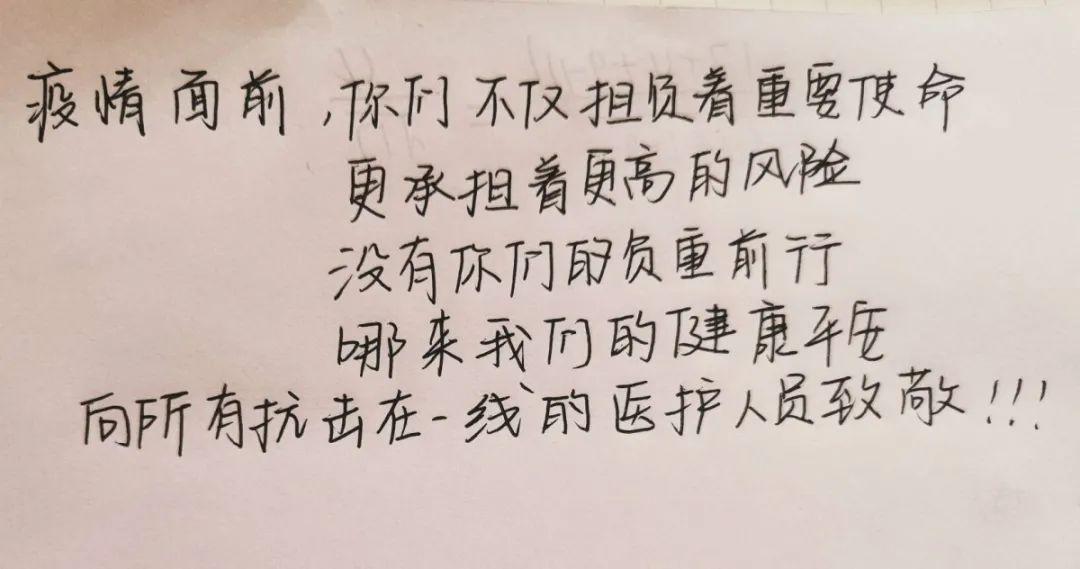 疫情面前,你们不仅担负着重要使命
更承担着更高的风险
没有你们的负重前行
哪来我们的健康平安
向所有抗击在一线的医护人员致敬!!!